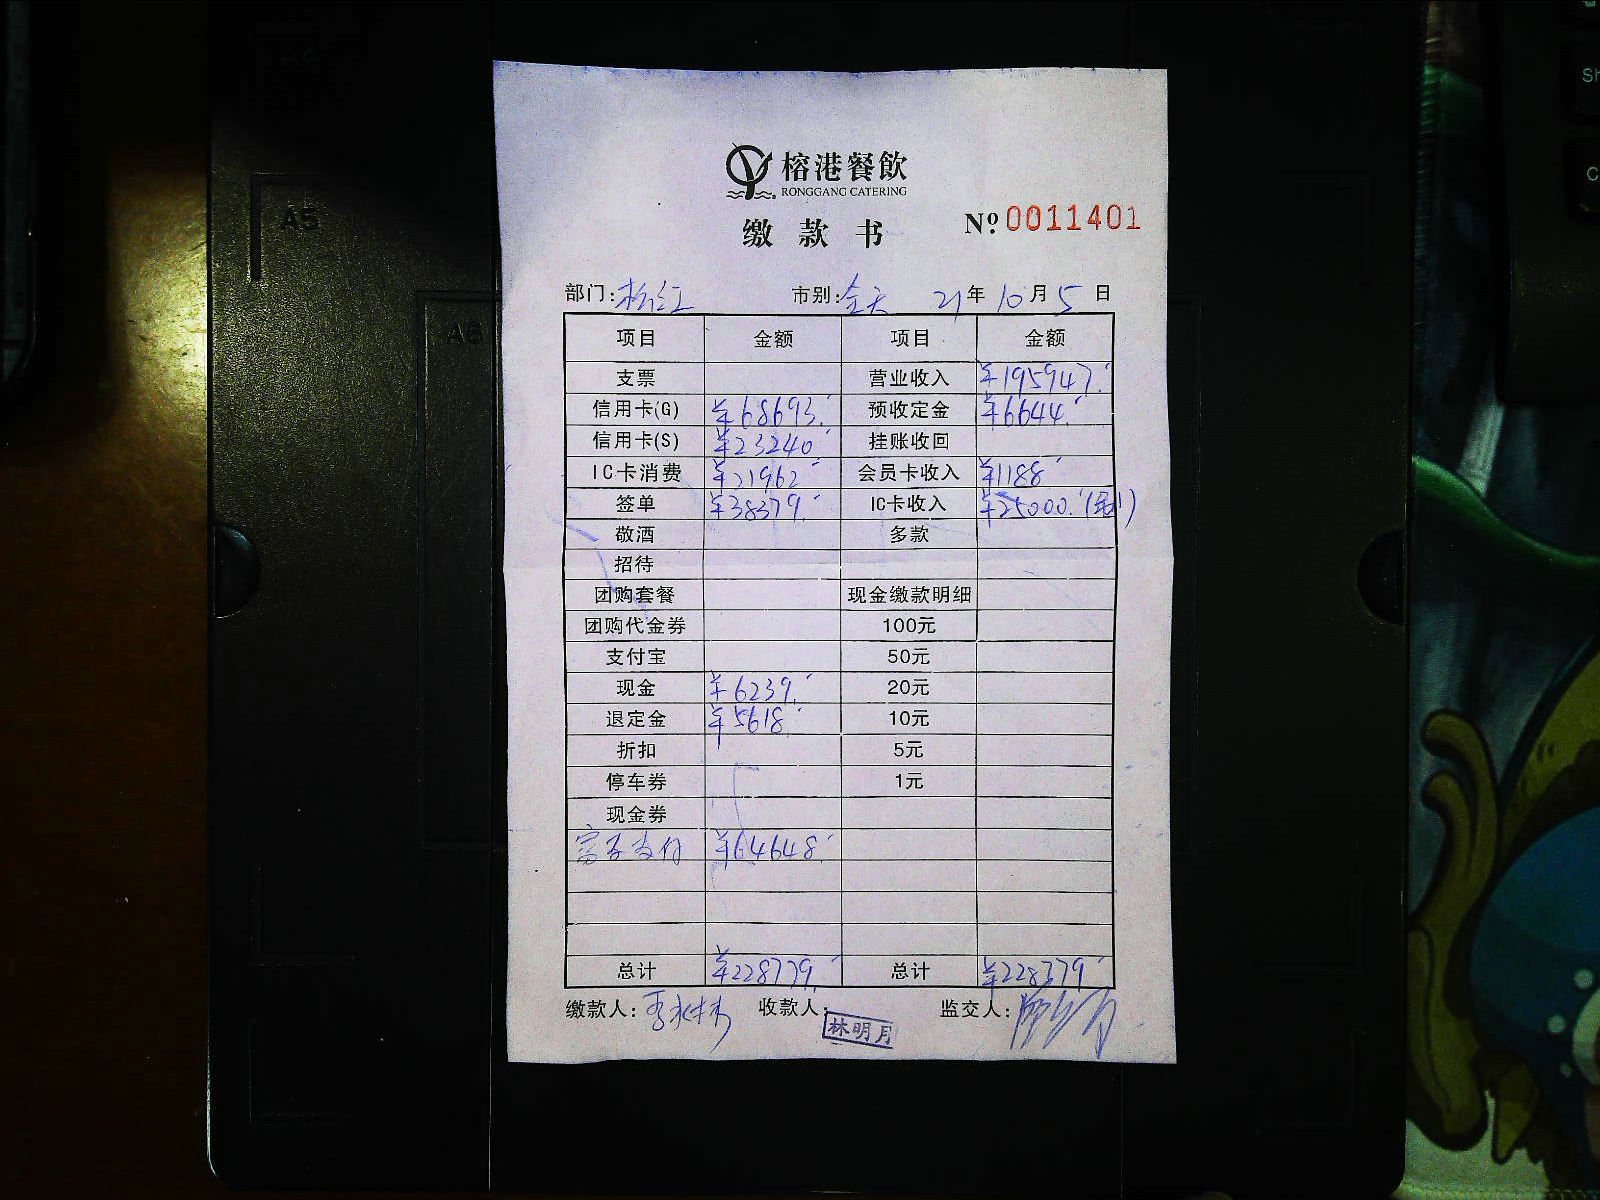 榕港餐飲
RONGGANG CATERING
缴款书
Nº 0011401
部门: 市别:全天 21年10月5日
项目 金额 项目 金额
支票 营业收入 ¥195947.-
信用卡(G) ¥68693.- 预收定金 ¥6644.-
信用卡(S) ¥23240.- 挂账收回
IC卡消费 ¥21962.- 会员卡收入 ¥1188.-
签单 ¥38379.- IC卡收入 ¥25000.-
敬酒 多款
招待
团购套餐 现金缴款明细
团购代金券 100元
支付宝 50元
现金 ¥6239.- 20元
退定金 ¥5618.- 10元
折扣 5元
停车券 1元
现金券
富友支付 ¥64648.-
总计 ¥228779.- 总计 ¥228779.-
缴款人: 收款人: 林明月 监交人:
A5
A6
Sh
C